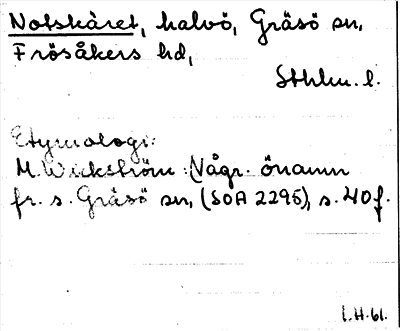 Notskäret, halvö, Gräsö sn,
Frösåkers hd,
Sthlm. l.
Etymologi:
M. Wickström: Någr. önamn
fr. s. Gräsö sn, (SOA 2295), s. 40 f.
I.H-61.